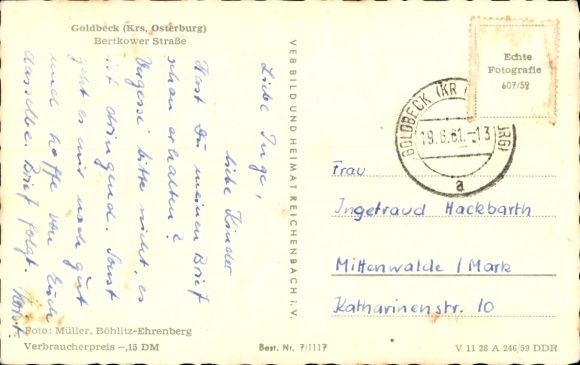 Goldbeck (Krs. Osterburg)
Bertkower Straße
Liebe Inge,
liebe Kinder
Hast Du meinen Brief
schon erhalten?
Vergesse bitte nicht, es
ist dringend. Sonst
geht es mir noch gut
und hoffe von Euch
dasselbe. Brief folgt.
Horst.
Foto: Müller, Böhlitz-Ehrenberg
Verbraucherpreis –,15 DM
VEB BILD UND HEIMAT REICHENBACH i. V.
Best. Nr. 7/1117
Echte
Fotografie
607/59
GOLDBECK (KR
URG)
19.6.61.-13
a
Frau
Ingetraud Hackbarth
Mittenwalde / Mark
Katharinenstr. 10
V 11 28 A 246/59 DDR